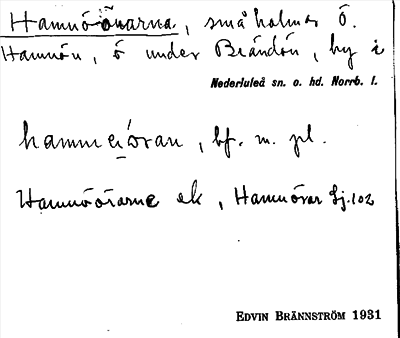 Hamnöörarna, små holmar Ö.
Hamnön, ö under Brändön, by i
Nederluleå sn. o. hd. Norrb. l.
hammeiöran, bf. m. pl.
Hamnöörarne ek, Hamnörar Sj. 102
EDVIN BRÄNNSTRÖM 1931